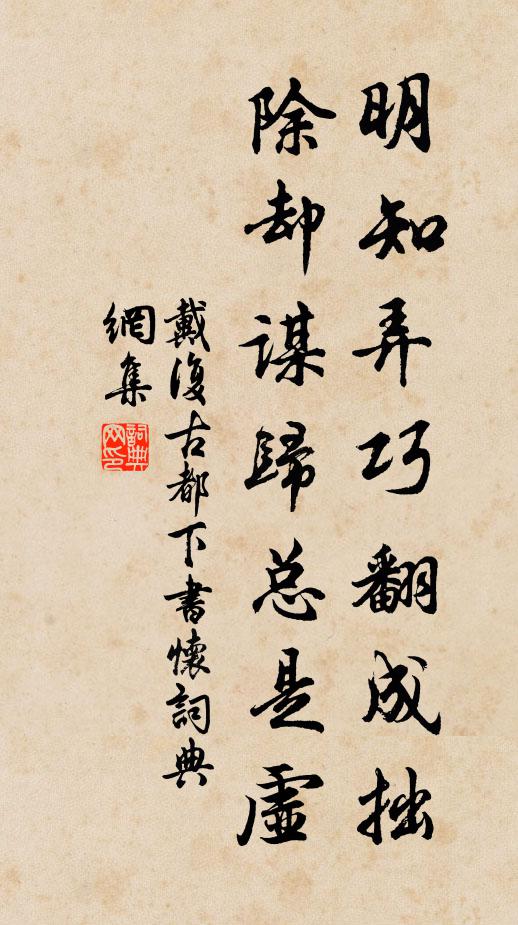 明知弄巧翻成拙
除却謀歸总是虛
戴復古都下書懷詞典
網集
詞典網印